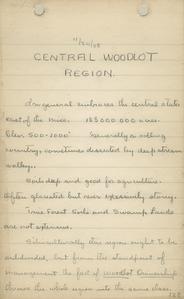 11/20/08
CENTRAL WOODLOT
REGION.
In general embraces the central states
east of the Miss. 185 000 000 acres.
Elev. 500-1000' Generally a rolling
country, sometimes dissected by deep stream
valleys.
Soils deep and good for agriculture.
Often glaciated but over stony.
True Forest Soils and Swamp Lands
are not extensive.
Silviculturally this region ought to be
subdivided, but from the standpoint of
management the fact of woodlot ownership
throws the whole region into the same class.